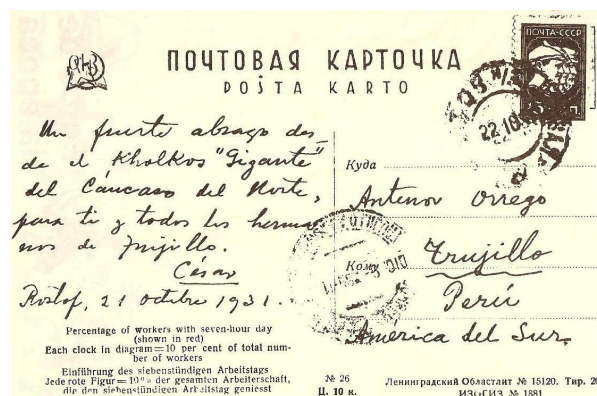 ПОЧТОВАЯ КАРТОЧКА
POŜTA KARTO
ПОЧТА-СССР
22 10
Un fuerte abrazo des-
de el Kholkos "Gigante"
del Cáucaso del Norte,
para ti y todos los herma-
nos de Trujillo.
César
Rostof, 21 octubre 1931.
Куда
Antenor Orrego
Кому
Trujillo
Perú
America del Sur.
Percentage of workers with seven-hour day
(shown in red)
Each clock in diagram=10 per cent of total num-
ber of workers
Einführung des siebenstündigen Arbeitstags
Jede rote Figur=10% der gesamten Arbeiterschaft,
die den siebenstündigen Arbeitstag geniesst
№ 26
Ц. 10 к.
Ленинградский Областлит № 15120. Тир. 20
ИЗОГИЗ № 1881